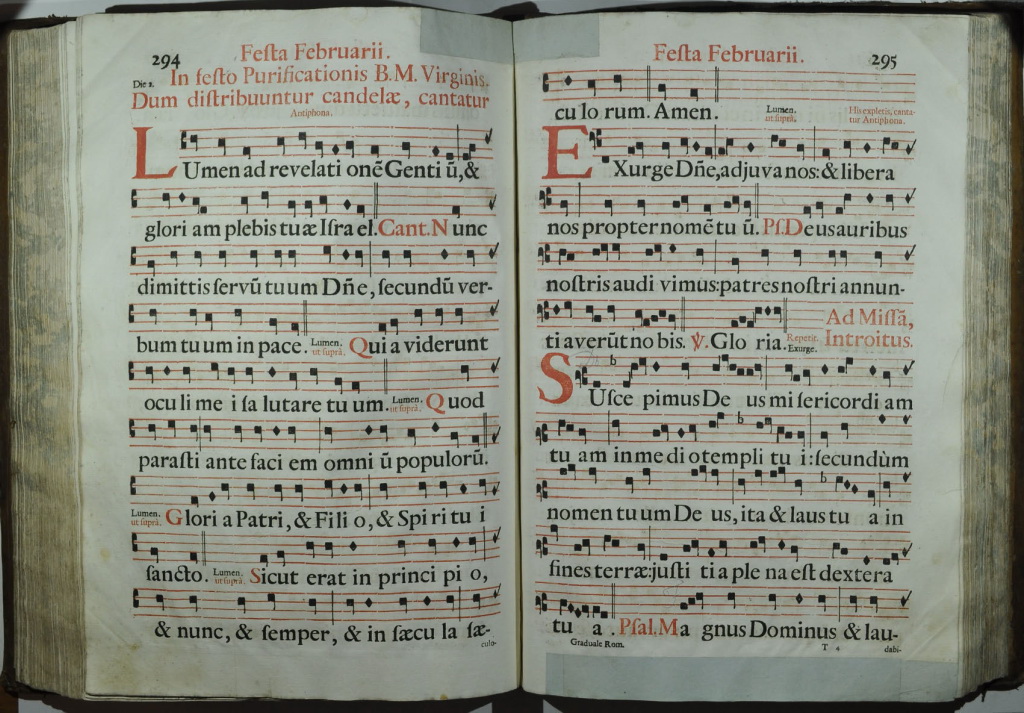 294
Feſta Februarii.
Die 2. In feſto Purificationis B. M. Virginis.
Dum diſtribuuntur candelæ, cantatur
Antiphona.
LUmen ad revelati onē Genti ū, &
glori am plebis tuæ Iſra el. Cant. N unc
dimittis ſervū tuum Dñe, ſecundū ver-
bum tuum in pace. Lumen. ut ſuprà. Qui a viderunt
ocu li me i ſa lutare tu um. Lumen. ut ſuprà. Quod
paraſti ante faci em omni ū populorū.
Lumen. ut ſuprà. Glori a Patri, & Fili o, & Spi ri tu i
ſancto. Lumen. ut ſuprà. Sicut erat in princi pi o,
& nunc, & ſemper, & in ſæcu la ſæ-
culo-
Feſta Februarii.
295
cu lo rum. Amen. Lumen. ut ſuprà. His expletis, canta-
tur Antiphona.
EXurge Dñe, adju va nos: & libera
nos propter nomē tu ū. Pſ. Deus auribus
noſtris audi vimus: patres noſtri annun-
ti averūt no bis. ℣. Glo ria. Repetit. Exurge. Ad Miſſā,
Introitus.
SUſce pimus De us mi ſericordi am
tu am in me di o templi tu i: ſecundùm
nomen tu um De us, ita & laus tu a in
fines terræ: juſti ti a ple na eſt dextera
tu a. Pſal. Ma gnus Dominus & lau-
Graduale Rom.
T 4
dabi-